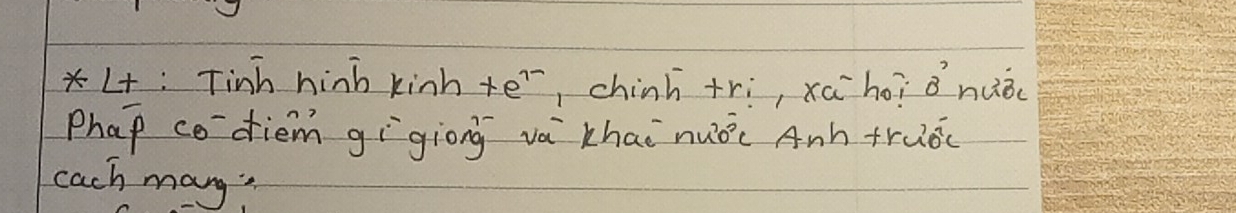 * Lt : Tình hình kinh tế, chính trị, xã hội ở nước
Pháp có điểm gì giống và khác nước Anh trước
cách mạng